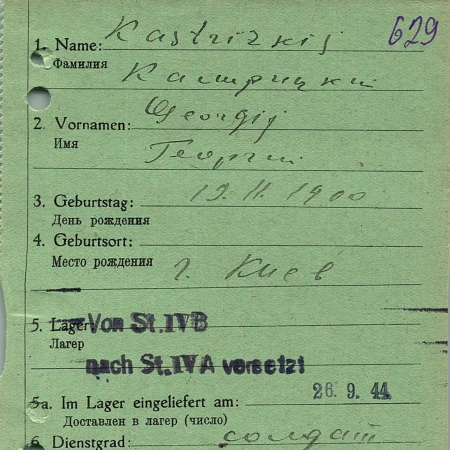 629
1. Name: Kastrizkij
Фамилия Кастрицкий
2. Vornamen: Georgij
Имя Георгий
3. Geburtstag: 19.II.1900
День рождения
4. Geburtsort:
Место рождения г. Киев
5. Lager: Von St. IV B
Лагер
nach St. IV A versetzt
5a. Im Lager eingeliefert am: 26. 9. 44
Доставлен в лагер (число)
6. Dienstgrad: солдат